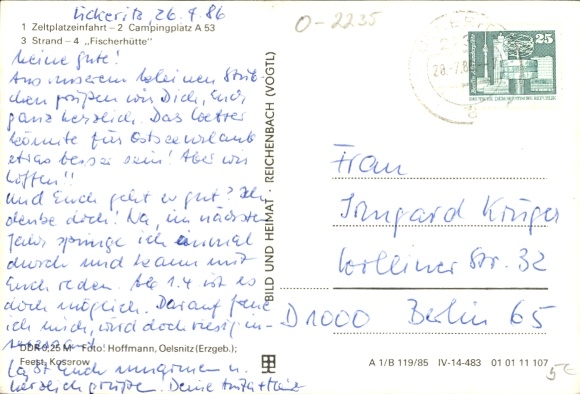 Ückeritz, 26.7.86
O-2235
1 Zeltplatzeinfahrt – 2 Campingplatz A 53
3 Strand – 4 „Fischerhütte"
Meine Gute!
Aus unserem kleinen
grüßen wir Dich, Euch,
ganz herzlich. Das Wetter
könnte für Ostseeurlaub
etwas besser sein! Aber wir
hoffen!!
und Euch geht es gut? Ich
denke doch! Na, im nächsten
Jahr springe ich einmal
durch und kann mit
Euch reden. Ab 1.4 ist es
doch möglich. Darauf freue
ich mich, wird doch riesig
DDR 0,25 M Foto: Hoffmann, Oelsnitz (Erzgeb.);
Feest, Koserow
Laßt Euch umarmen u.
herzlich grüßen. Deine
BILD UND HEIMAT · REICHENBACH (VOGTL)
25
Frau
Irmgard Krüger
Str. 32
D 1000 Berlin 65
A 1/B 119/85 IV-14-483 01 01 11 107
5€